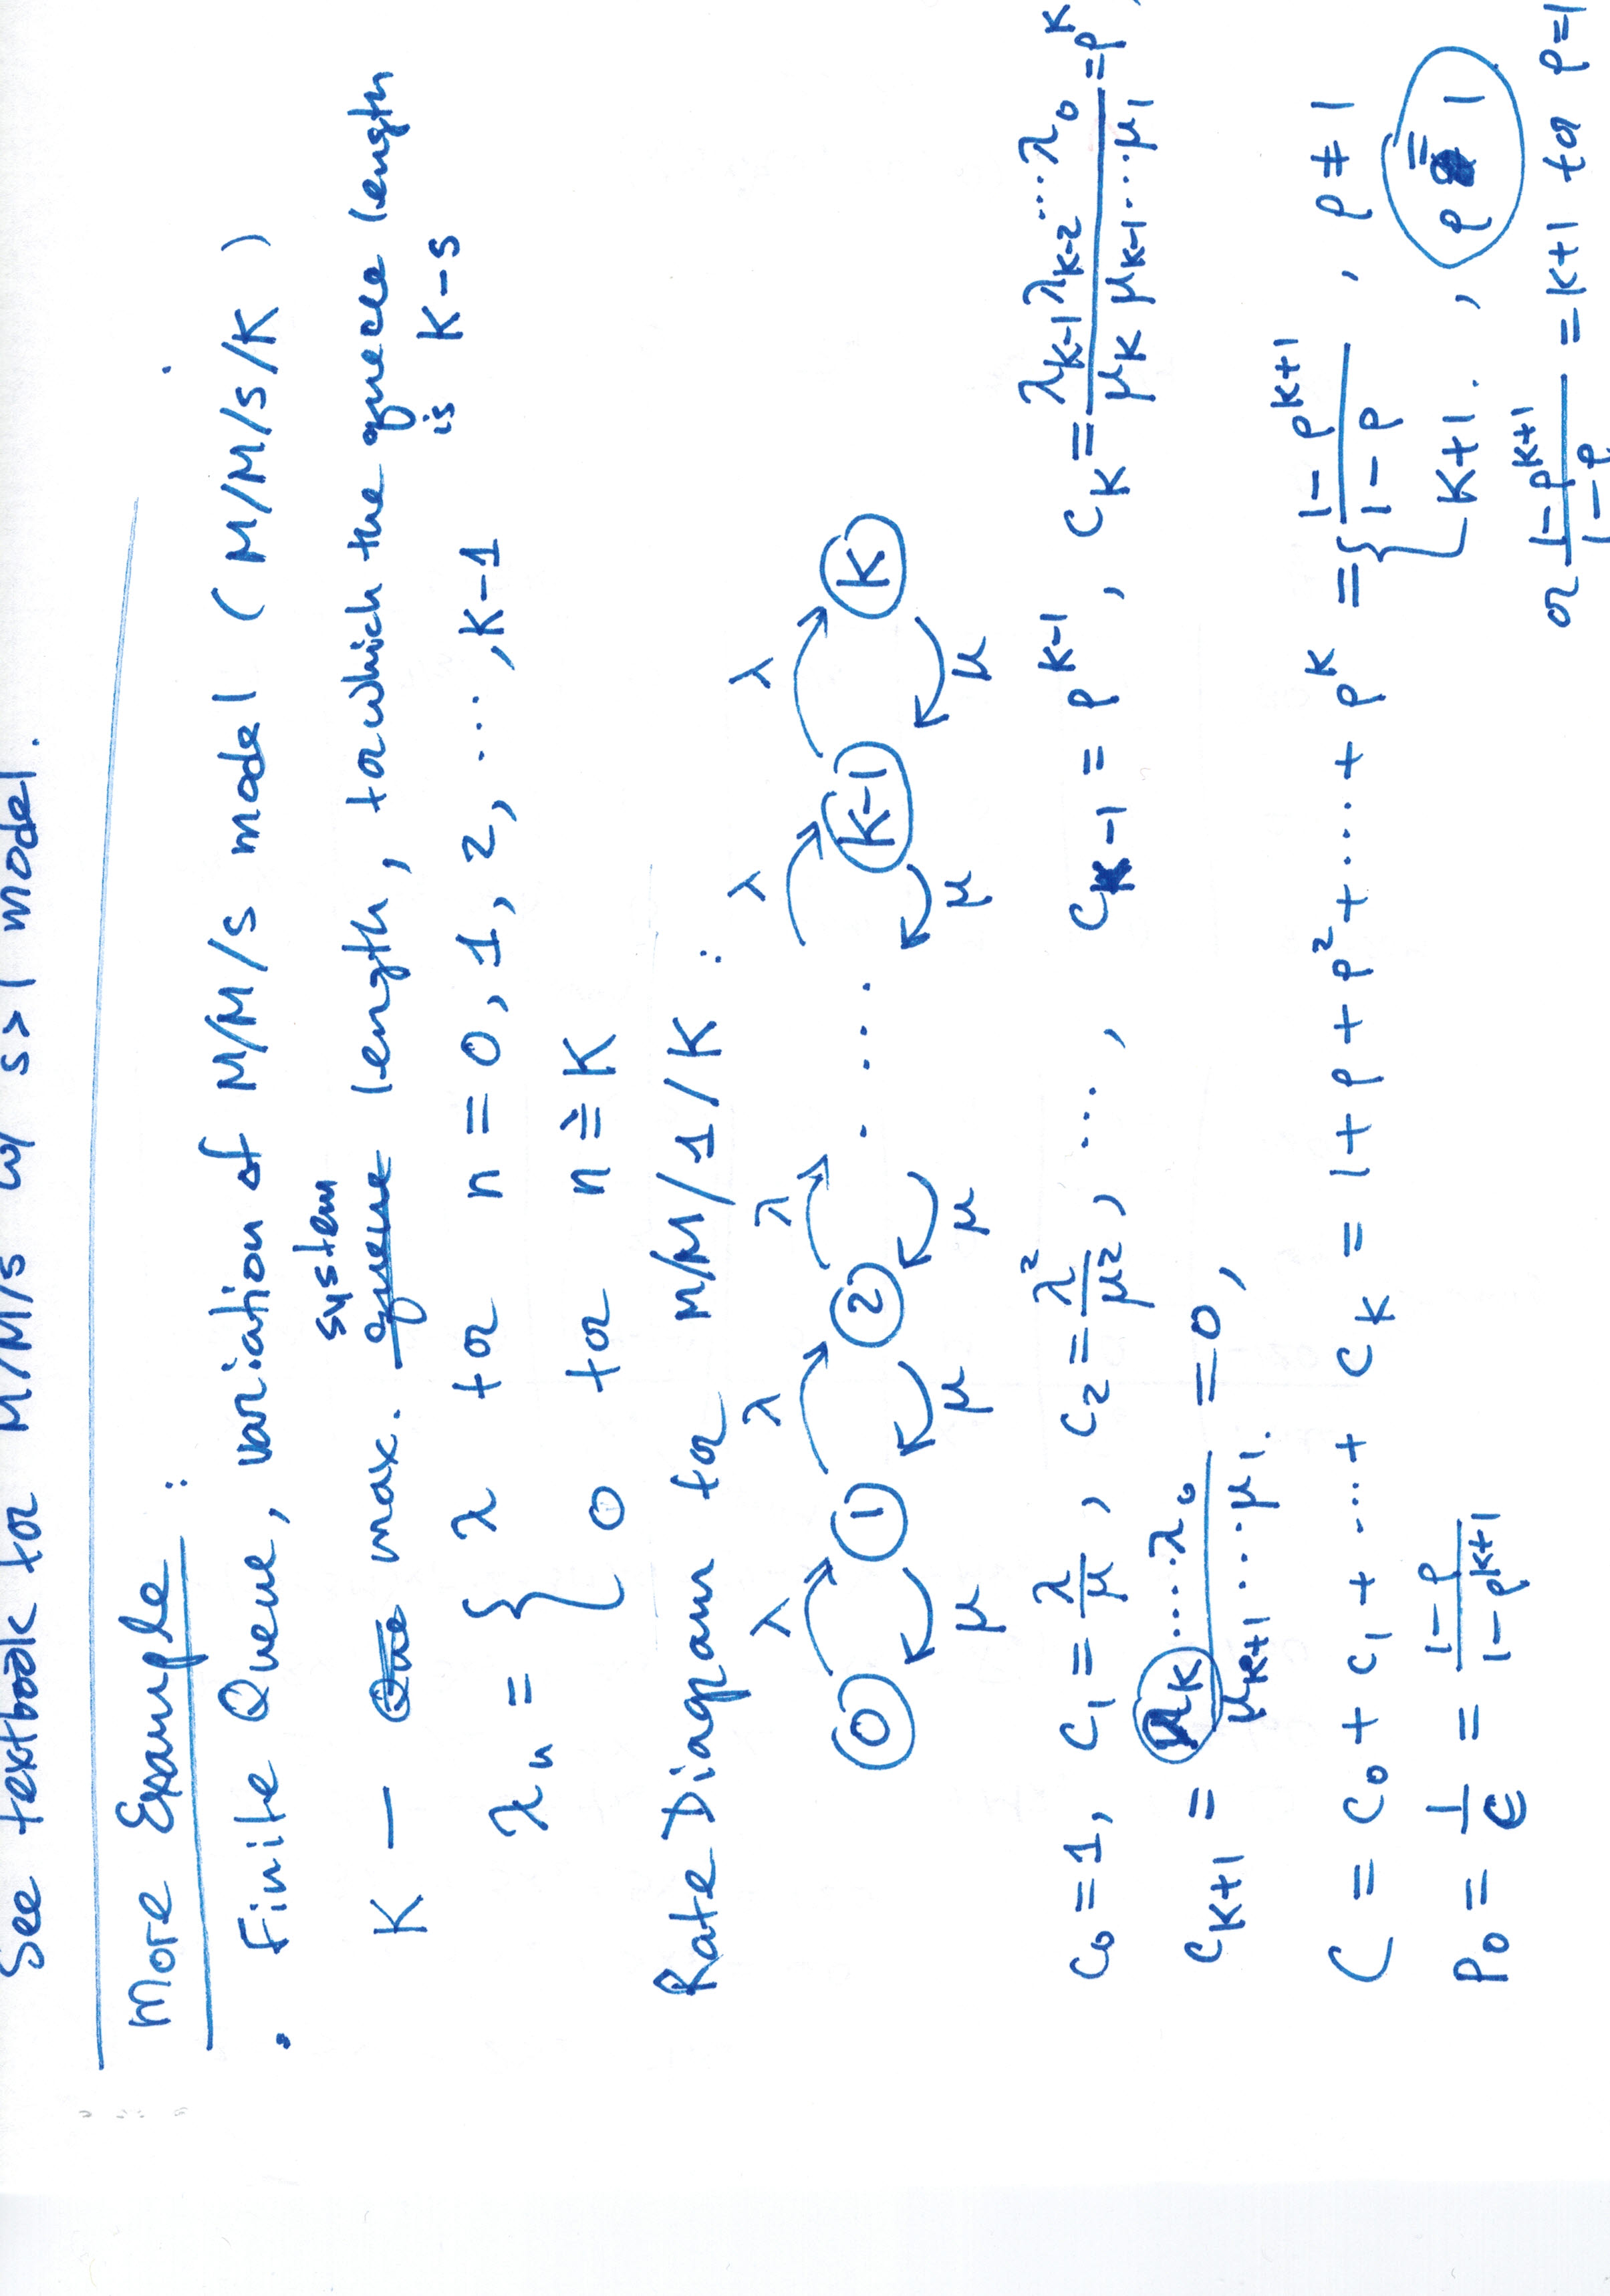 See textbook for M/M/s w/ s>1 model.
More Example :
• Finite Queue, variation of M/M/s model (M/M/s/K)
system
K — max. queue length, for which the queue length
is K-s
λn = { λ for n = 0, 1, 2, ..., K-1
0 for n ≥ K
Rate Diagram for M/M/1/K :
λ λ λ λ λ
0 1 2 .... K-1 K
μ μ μ μ μ
C0 = 1, C1 = λ/μ, C2 = λ²/μ², ..., CK-1 = ρ^(K-1), CK = (λK-1 λK-2 ... λ0)/(μK μK-1 ... μ1) = ρ^K,
CK+1 = (λK ... λ0)/(μK+1 ... μ1) = 0,
C = C0 + C1 + ... + CK = 1 + ρ + ρ² + .... + ρ^K = { (1-ρ^(K+1))/(1-ρ) , ρ ≠ 1
K+1. , ρ = 1
P0 = 1/C = (1-ρ)/(1-ρ^(K+1))
or (1-ρ^(K+1))/(1-ρ) = K+1 for ρ=1